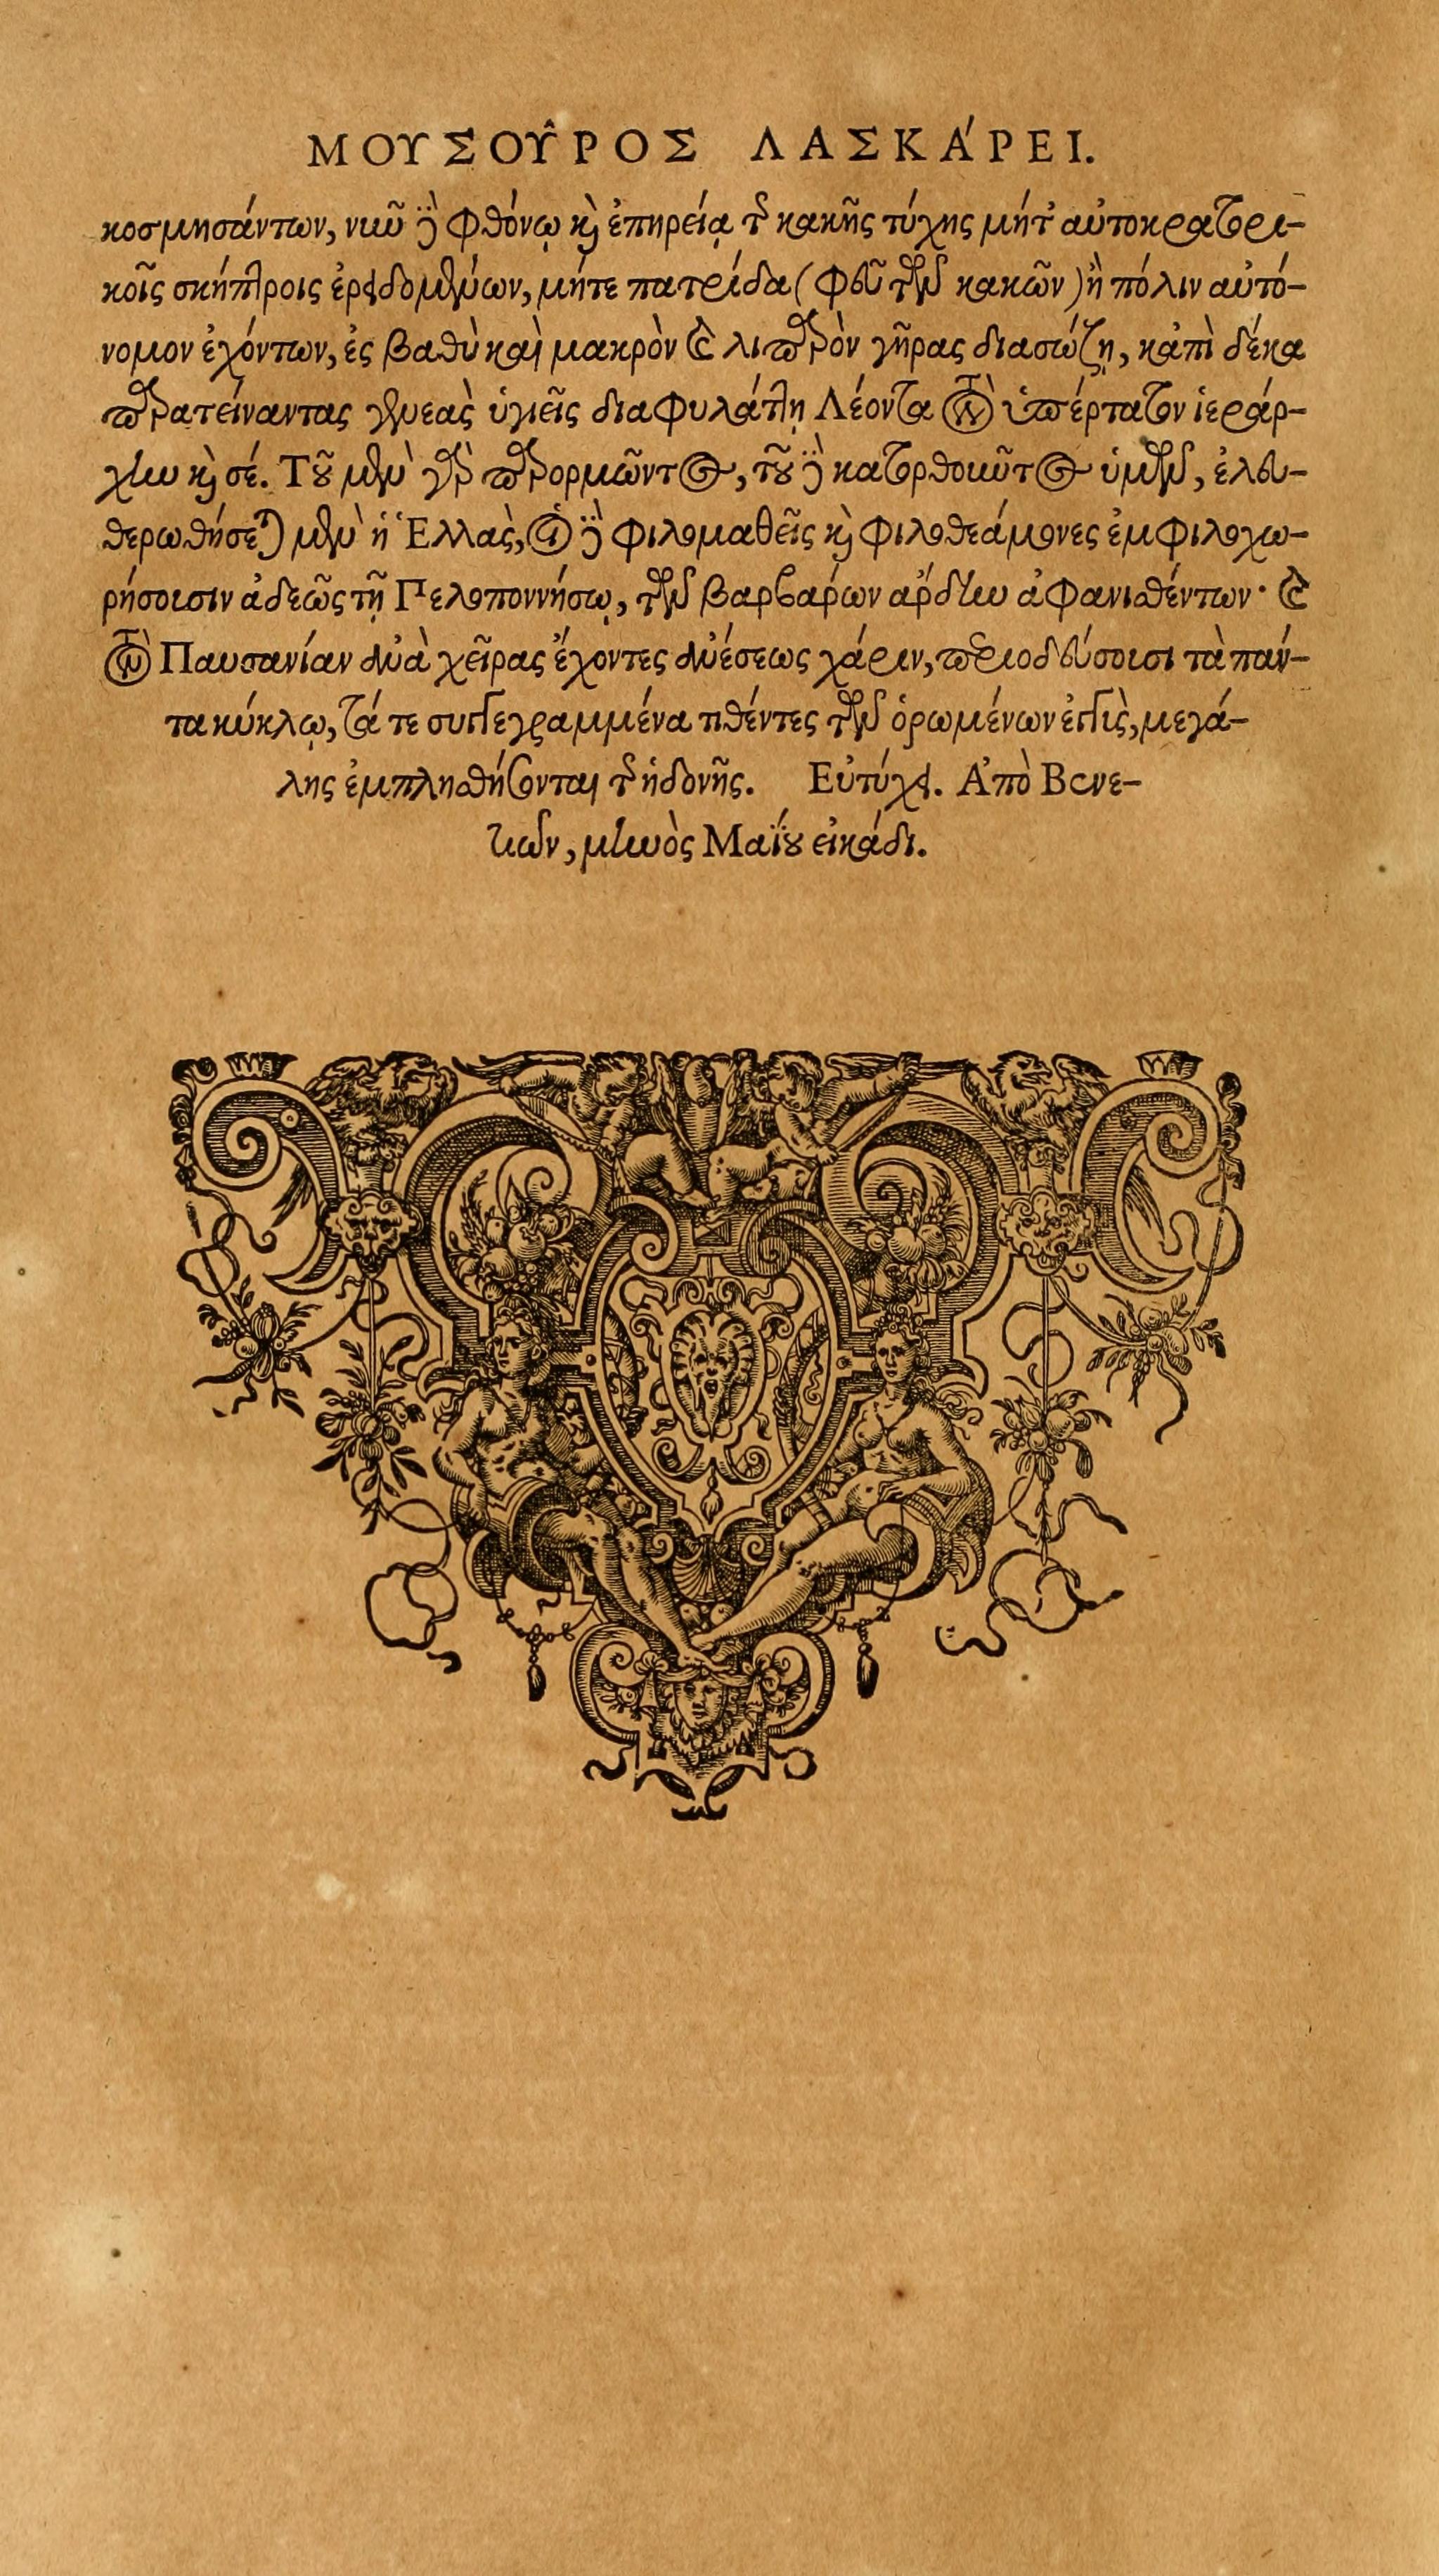 ΜΟΥΣΟΥ͂ΡΟΣ ΛΑΣΚΆΡΕΙ.
κοσμησάντων, νῦν δὲ φθόνῳ καὶ ἐπηρείᾳ τῆς κακῆς τύχης μήτ' αὐτοκρατορι-
κοῖς σκήπτροις ἐρειδομένων, μήτε πατρίδα (φεῦ τῶν κακῶν) ἢ πόλιν αὐτό-
νομον ἐχόντων, ἐς βαθὺ καὶ μακρὸν καὶ λιπαρὸν γῆρας διασώζῃ, κἀπὶ δέκα
παρατείναντας γενεὰς ὑγιεῖς διαφυλάττῃ Λέοντα τὸν ὑπέρτατον ἱεράρ-
χην καὶ σέ. Τοῦ μὲν γὰρ παρορμῶντος, τοῦ δὲ κατορθοῦντος ὑμῶν, ἐλευ-
θερωθήσεται μὲν ἡ Ἑλλὰς, οἱ δὲ φιλομαθεῖς καὶ φιλοθεάμονες ἐμφιλοχω-
ρήσουσιν ἀδεῶς τῇ Πελοποννήσῳ, τῶν βαρβάρων ἄρδην ἀφανισθέντων· καὶ
τὸν Παυσανίαν ἀνὰ χεῖρας ἔχοντες ἀνέσεως χάριν, περιοδεύσουσι τὰ πάν-
τα κύκλῳ, τά τε συγγεγραμμένα τιθέντες τῶν ὁρωμένων ἐγγὺς, μεγά-
λης ἐμπλησθήσονται τῆς ἡδονῆς. Εὐτύχει. Ἀπὸ Βενε-
τιῶν, μηνὸς Μαΐου εἰκάδι.